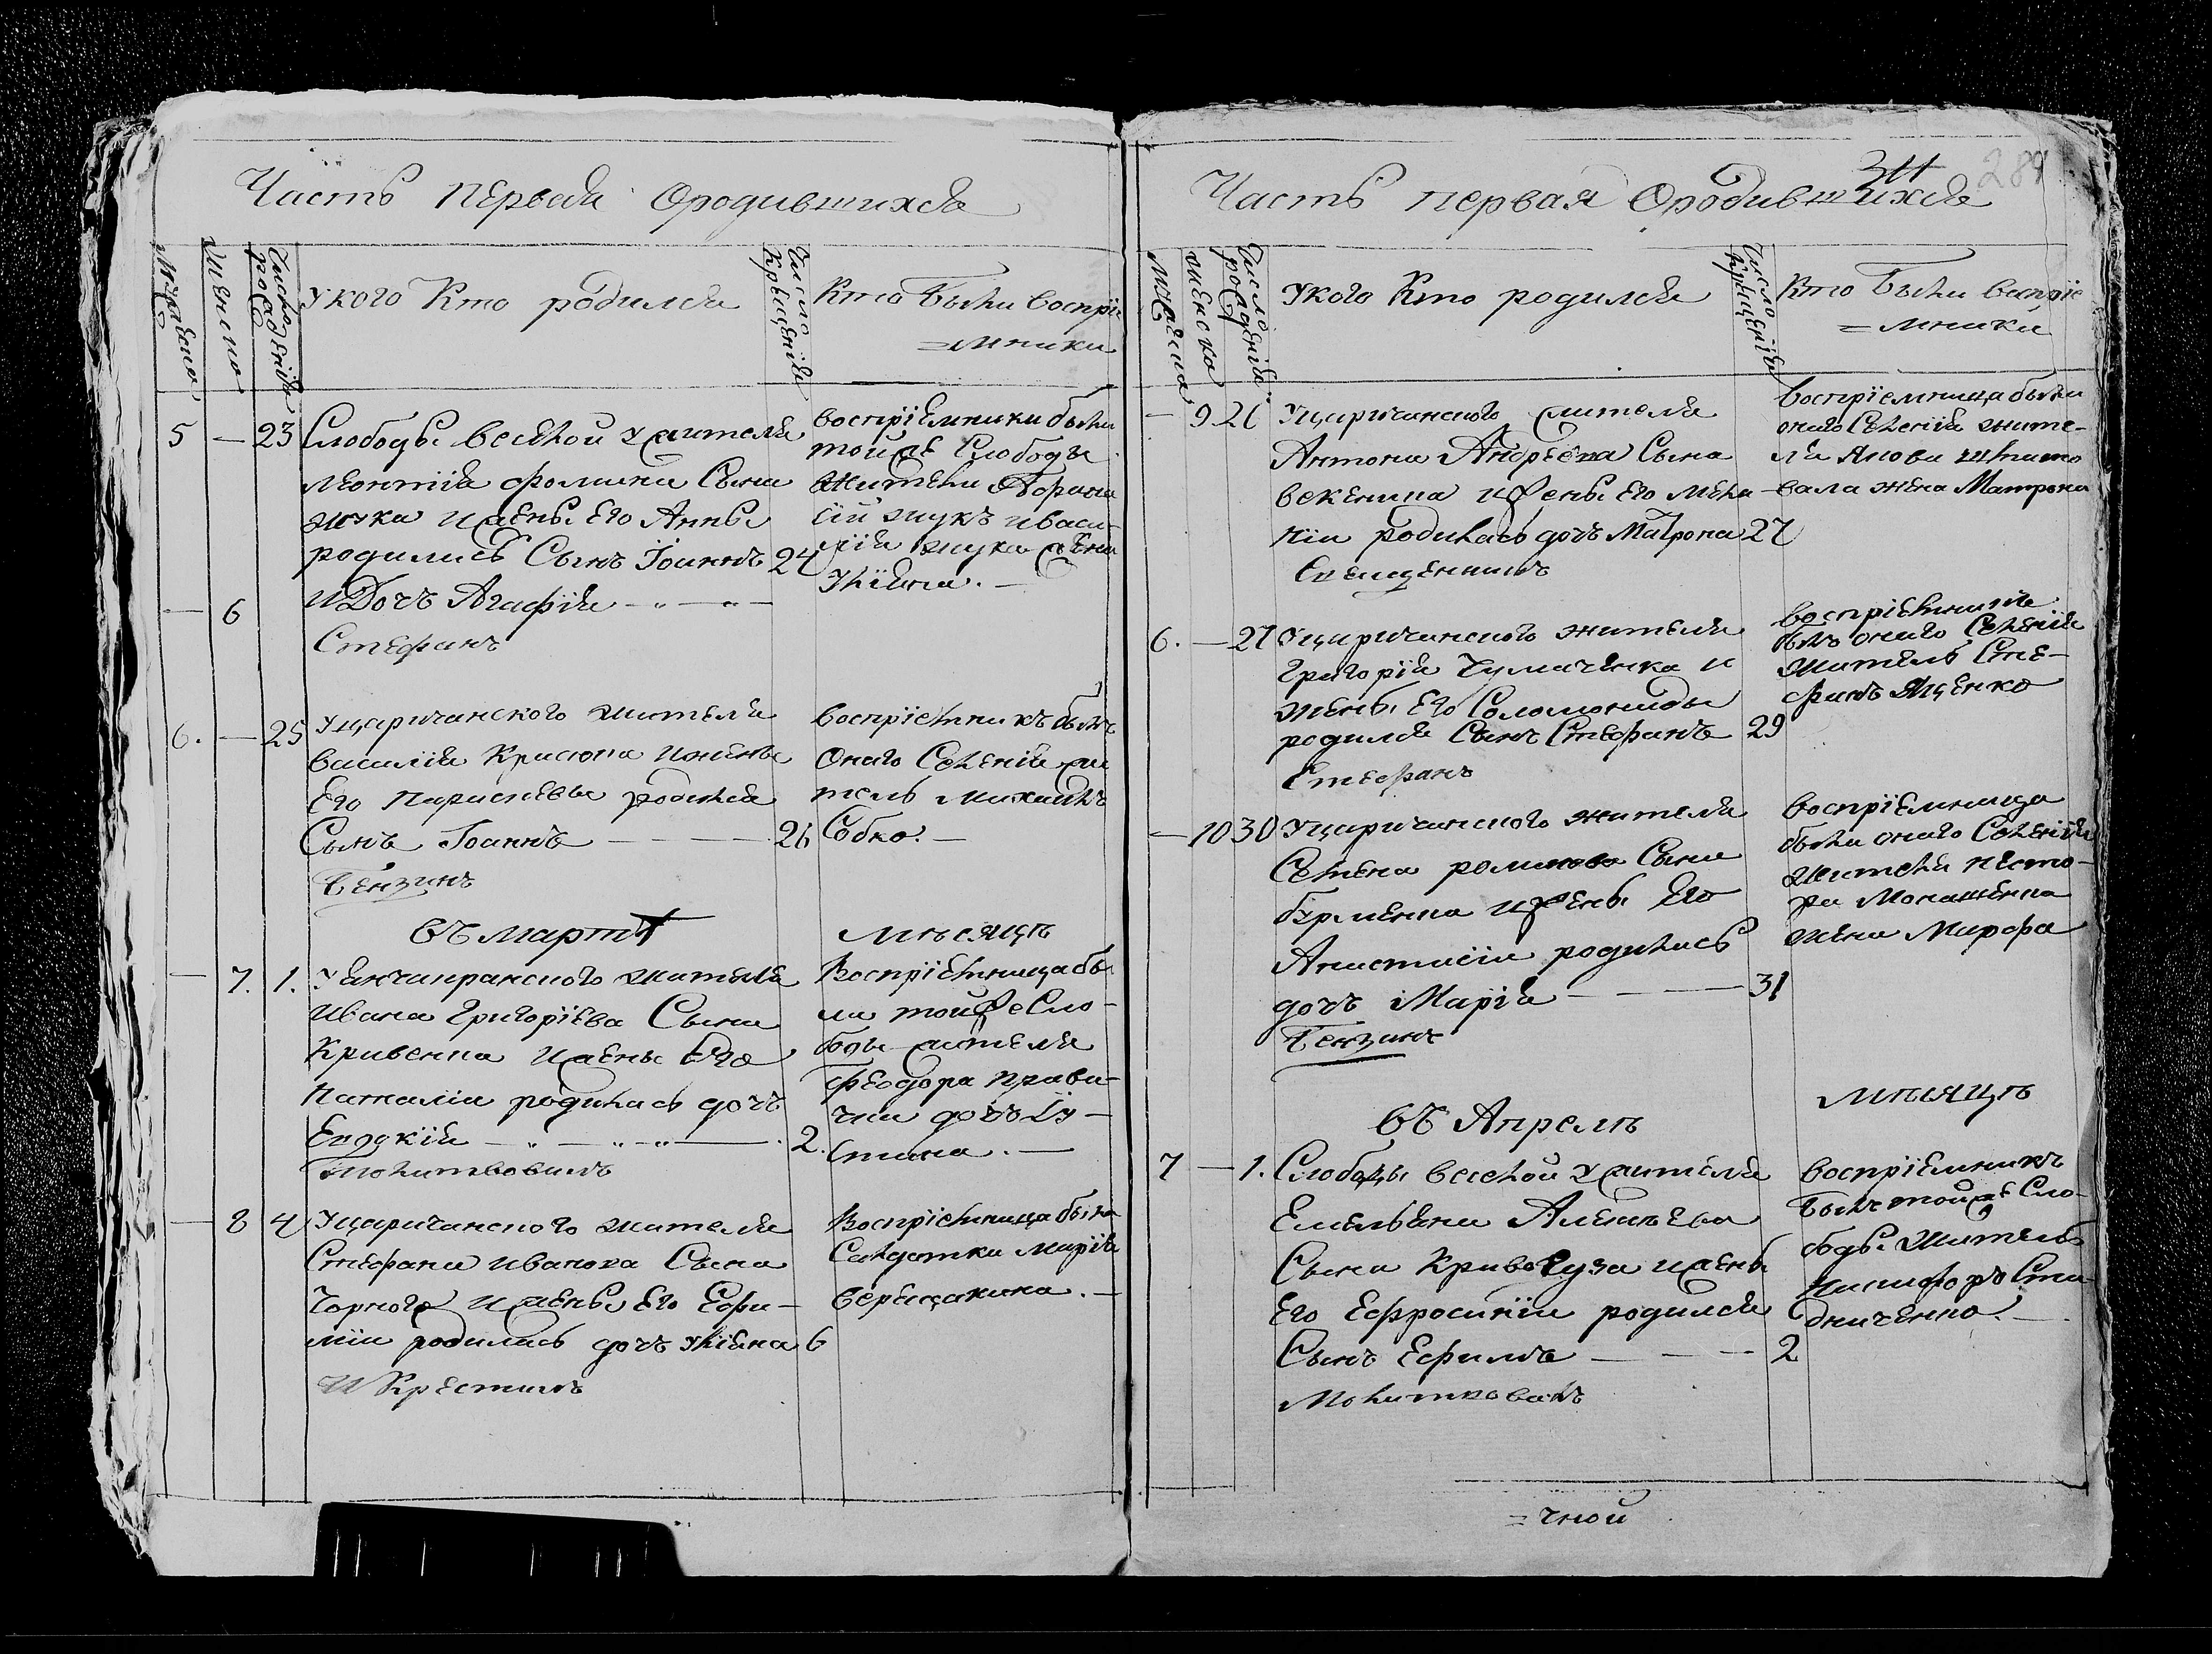 Часть первая ородившихся
мужеска
женска
Число рождения
Укого Кто родился
Число Крещения
Кто Были воспрiе
=мники
5 — 23 Слободы веселой у жителя
Леонтiя Фомина Сына
жука и жены Его Анны
родились Сынъ Iоаннъ 24
6 и Дочь Агафiя
Стефанъ
воспрiемники были
тойже Слободы
жители Афана
сiй жукъ и васи
лiя жука жена
Улiяна. —
6. — 25 Уцаричанского жителя
василiя и жены
Его Парасневы родился
Сынъ Iоаннъ 26
Бензинъ
воспрiемникъ былъ
Онаго Селенiя жи
тель Михаилъ
Собко. —
въ мартѣ мѣсяцѣ
— 7. 1. жителя
Ивана Григорiева Сына
Кривенка и жены Его
Наталiи родилась дочь
Евдокiя 2.
воспрiемница бы
ла тойже Сло-
боды жителя
Феодора
дочь Iу-
стина. —
— 8 4 Уцаричанского жителя
Стефана Иванова Сына
Чорного и жены Его Ефи-
мiи родилась дочь Улiяна 6
И Крестилъ
воспрiемница была
Салдатка Марiя
верещакина. —
Часть первая Ородившихся
311 289
мужеска
женска
Число рождения
Укого Кто родился
Число Крещения
Кто Были васпрiе
=мники
— 9 26 Уцаричанского жителя
Антона Андреева Сына
векенина и жены Его Мела
нiи родилась дочь Матрона 27
Священникъ
воспрiемница была
онаго Селенiя жите-
ля Якова
вала жена Матрона
6. — 27 Уцаричанского жителя
Григорiя Чумаченка и
жены Его Соломониды
родился Сынъ Стефанъ 29
Стефанъ
воспрiемникъ
былъ онаго Селенiя
житель Сте-
фанъ Яценко
— 10 30 Уцаричанского жителя
Семена романова Сына
бурменка и жены Его
Анастасiи родилась
дочь Марiя 31
Бензинъ
воспрiемница
была онаго Селенiя
жителя Несто-
ра Монашенка
жена Марфа
въ Апрелѣ мѣсяцѣ
7 — 1. Слободы веселой у жителя
Емельяна Алексѣева
Сына Кривогуза и жены
Его Ефросинiи родился
Сынъ Ефимъ 2
Молитвовалъ
воспрiемникъ
Былъ тойже Сло-
боды житель
Никифоръ Ста
дниченко. —
=чной